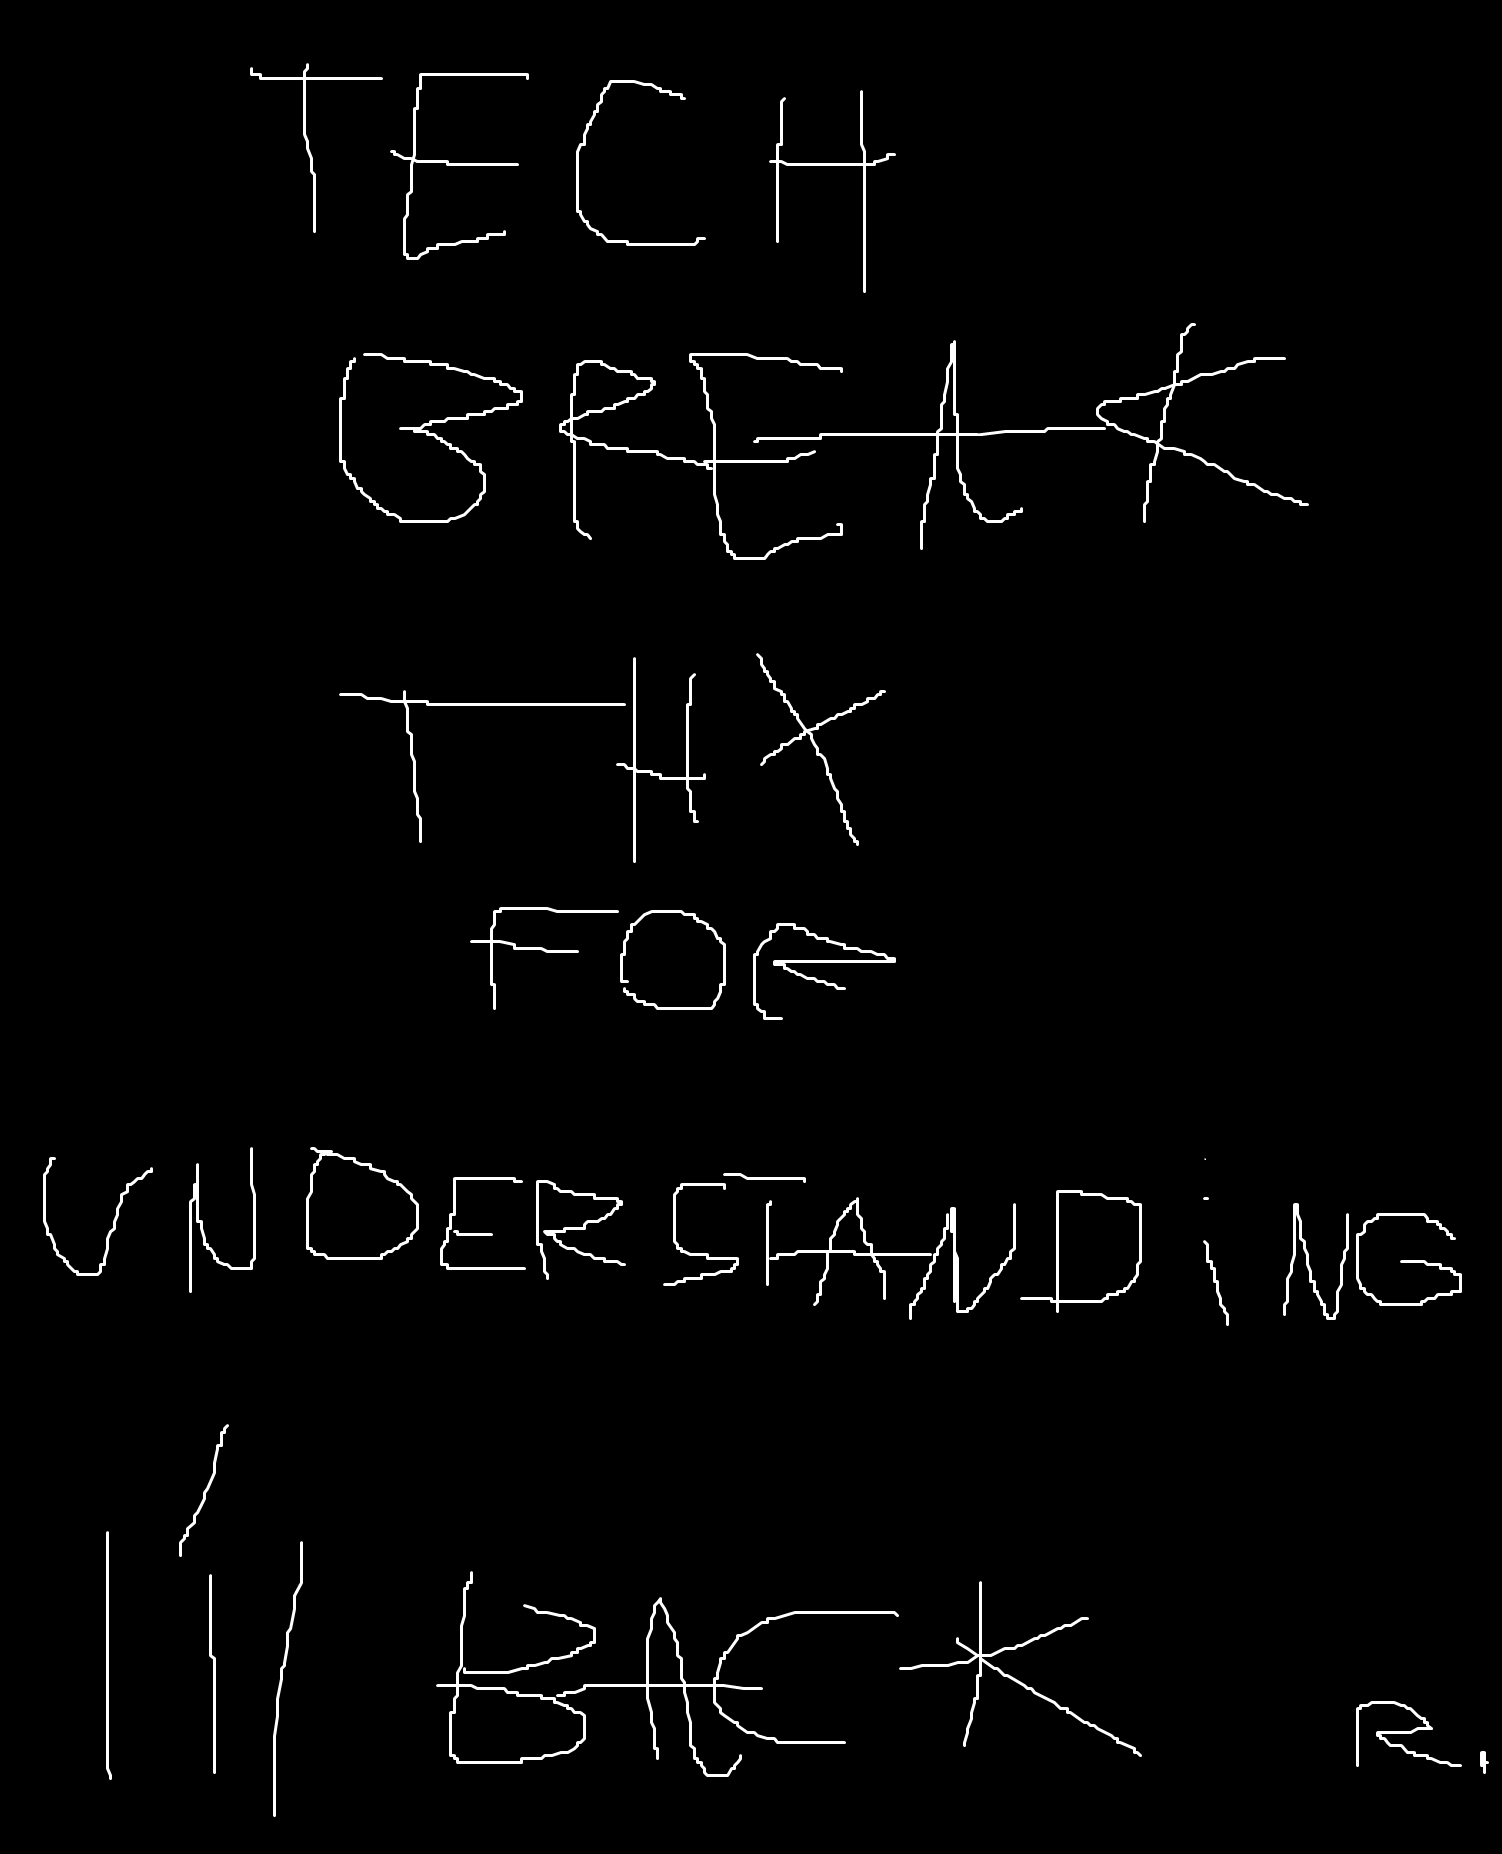 TECH
BREAK
THX
FOR
UNDERSTANDiNG
I'll BACK
R.